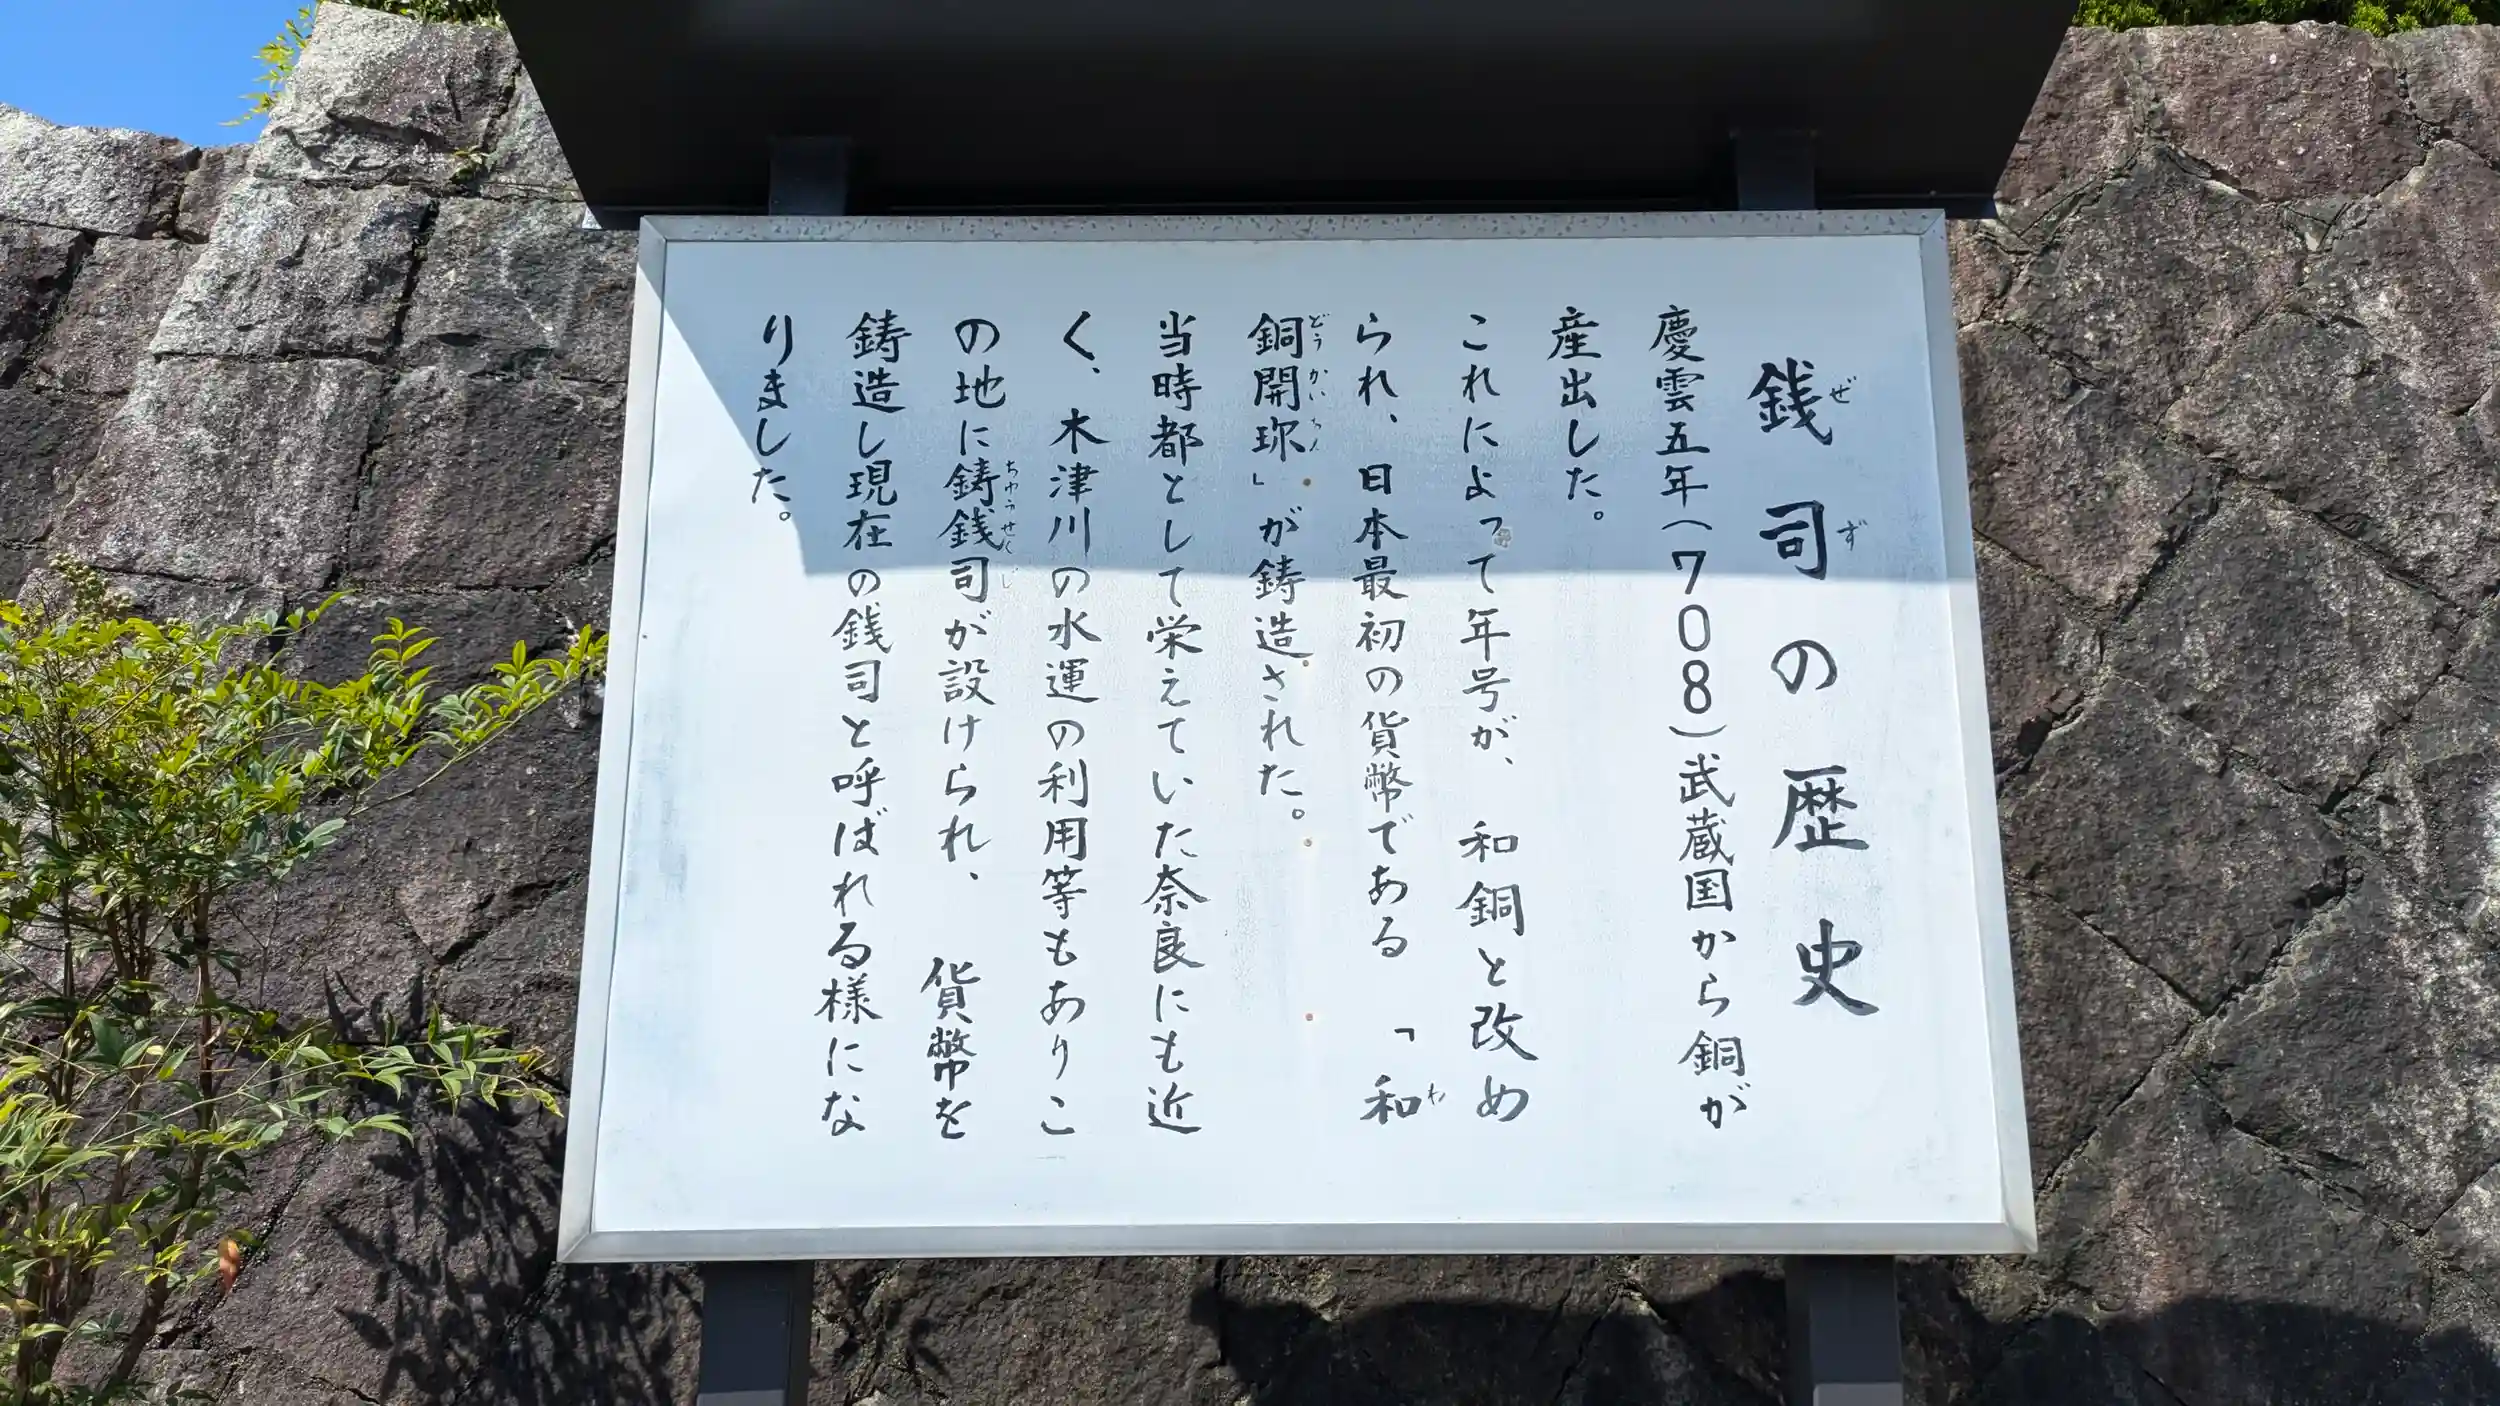 銭司の歴史
慶雲五年(708)武蔵国から銅が
産出した。
これによって年号が、和銅と改め
られ、日本最初の貨幣である「和
銅開珎」が鋳造された。
当時都として栄えていた奈良にも近
く、木津川の水運の利用等もありこ
の地に鋳銭司が設けられ、貨幣を
鋳造し現在の銭司と呼ばれる様にな
りました。
ぜ
ず
わ
どうかいちん
ちゆうせんじ